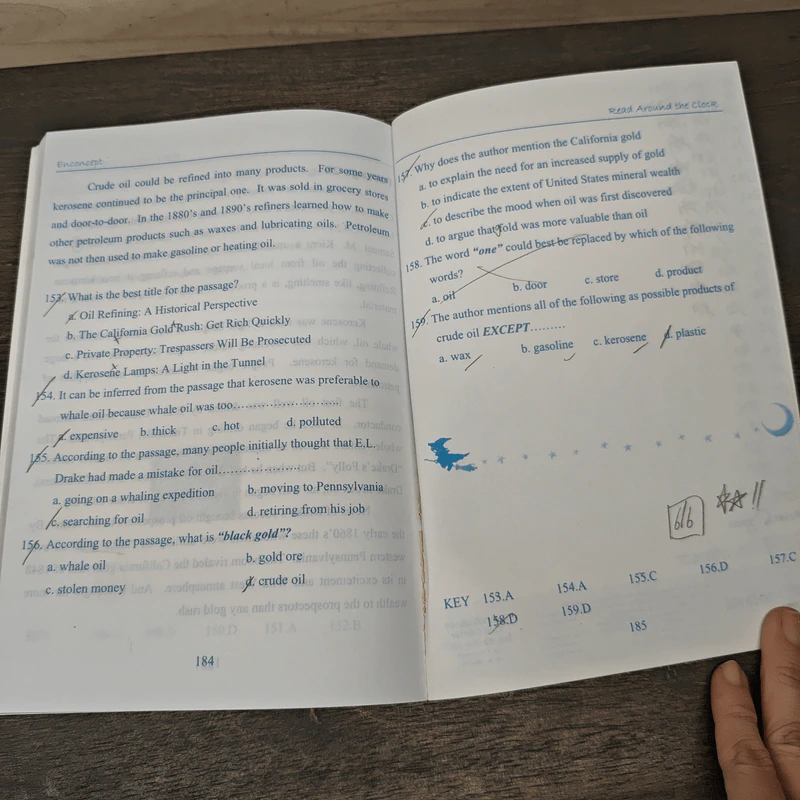 Enconcept
Crude oil could be refined into many products. For some years
kerosene continued to be the principal one. It was sold in grocery stores
and door-to-door. In the 1880's and 1890's refiners learned how to make
other petroleum products such as waxes and lubricating oils. Petroleum
was not then used to make gasoline or heating oil.
153. What is the best title for the passage?
a. Oil Refining: A Historical Perspective
b. The California Gold Rush: Get Rich Quickly
c. Private Property: Trespassers Will Be Prosecuted
d. Kerosene Lamps: A Light in the Tunnel
154. It can be inferred from the passage that kerosene was preferable to
whale oil because whale oil was too........................
a. expensive b. thick c. hot d. polluted
155. According to the passage, many people initially thought that E.L.
Drake had made a mistake for oil..................
a. going on a whaling expedition b. moving to Pennsylvania
c. searching for oil d. retiring from his job
156. According to the passage, what is "black gold"?
a. whale oil b. gold ore
c. stolen money d. crude oil
184
Read Around the Clock
157. Why does the author mention the California gold
a. to explain the need for an increased supply of gold
b. to indicate the extent of United States mineral wealth
c. to describe the mood when oil was first discovered
d. to argue that fold was more valuable than oil
158. The word "one" could best be replaced by which of the following
words?
a. oil b. door c. store d. product
159. The author mentions all of the following as possible products of
crude oil EXCEPT.........
a. wax b. gasoline c. kerosene d. plastic
6/6 !!
KEY 153.A 154.A 155.C 156.D 157.C
158.D 159.D
185